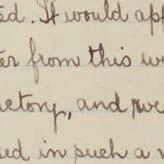 ed. It would app
er from this we
ctory, and we
ed in such a